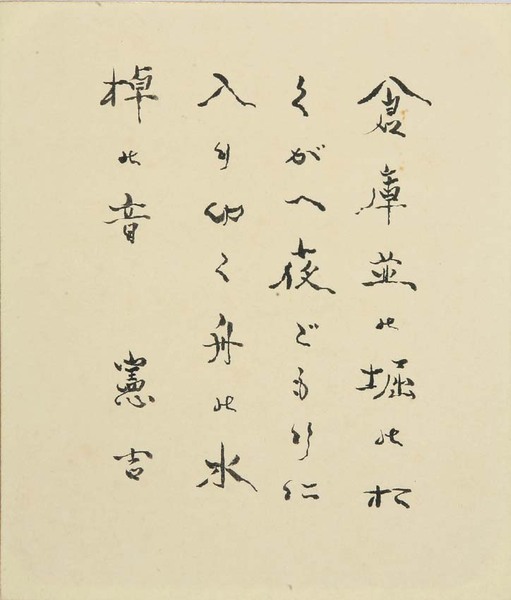 倉庫並の堀のお
くがへ夜ごもりに
入りゆく舟の水
棹の音　憲吉